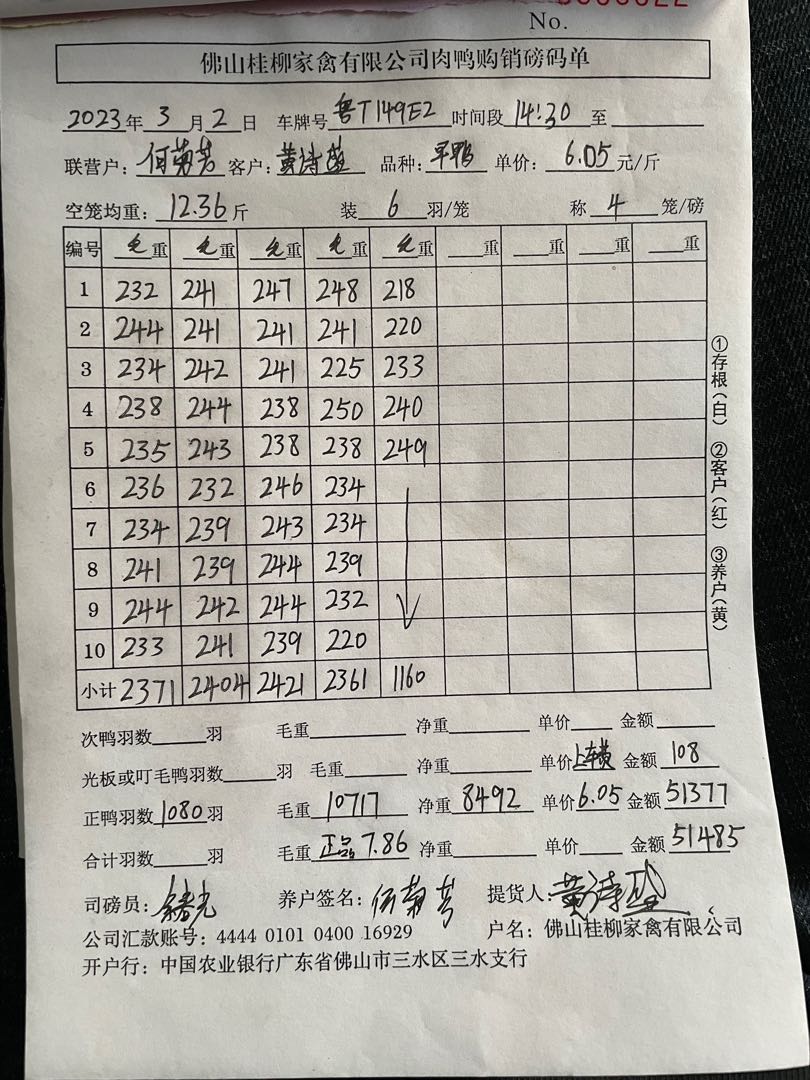 No.
佛山桂柳家禽有限公司肉鸭购销磅码单
2023年 3 月 2 日 车牌号 粤T149E2 时间段 14:30 至
联营户: 何菊芳 客户: 黄诗 品种: 平鸭 单价: 6.05 元/斤
空笼均重: 12.36 斤 装 6 羽/笼 称 4 笼/磅
编号 毛重 毛重 毛重 毛重 毛重 重 重 重 重
1 232 241 247 248 218
2 244 241 241 241 220
3 234 242 241 225 233
4 238 244 238 250 240
5 235 243 238 238 249
6 236 232 246 234
7 234 239 243 234
8 241 239 244 239
9 244 242 244 232
10 233 241 239 220
小计 2371 2404 2421 2361 1160
①存根(白) ②客户(红) ③养户(黄)
次鸭羽数 羽 毛重 净重 单价 金额
光板或叮毛鸭羽数 羽 毛重 净重 单价 上车费 金额 108
正鸭羽数 1080 羽 毛重 10717 净重 8492 单价 6.05 金额 51377
合计羽数 羽 毛重 正品 7.86 净重 单价 金额 51485
司磅员: 养户签名: 何菊芳 提货人: 黄诗
公司汇款账号: 4444 0101 0400 16929 户名: 佛山桂柳家禽有限公司
开户行: 中国农业银行广东省佛山市三水区三水支行